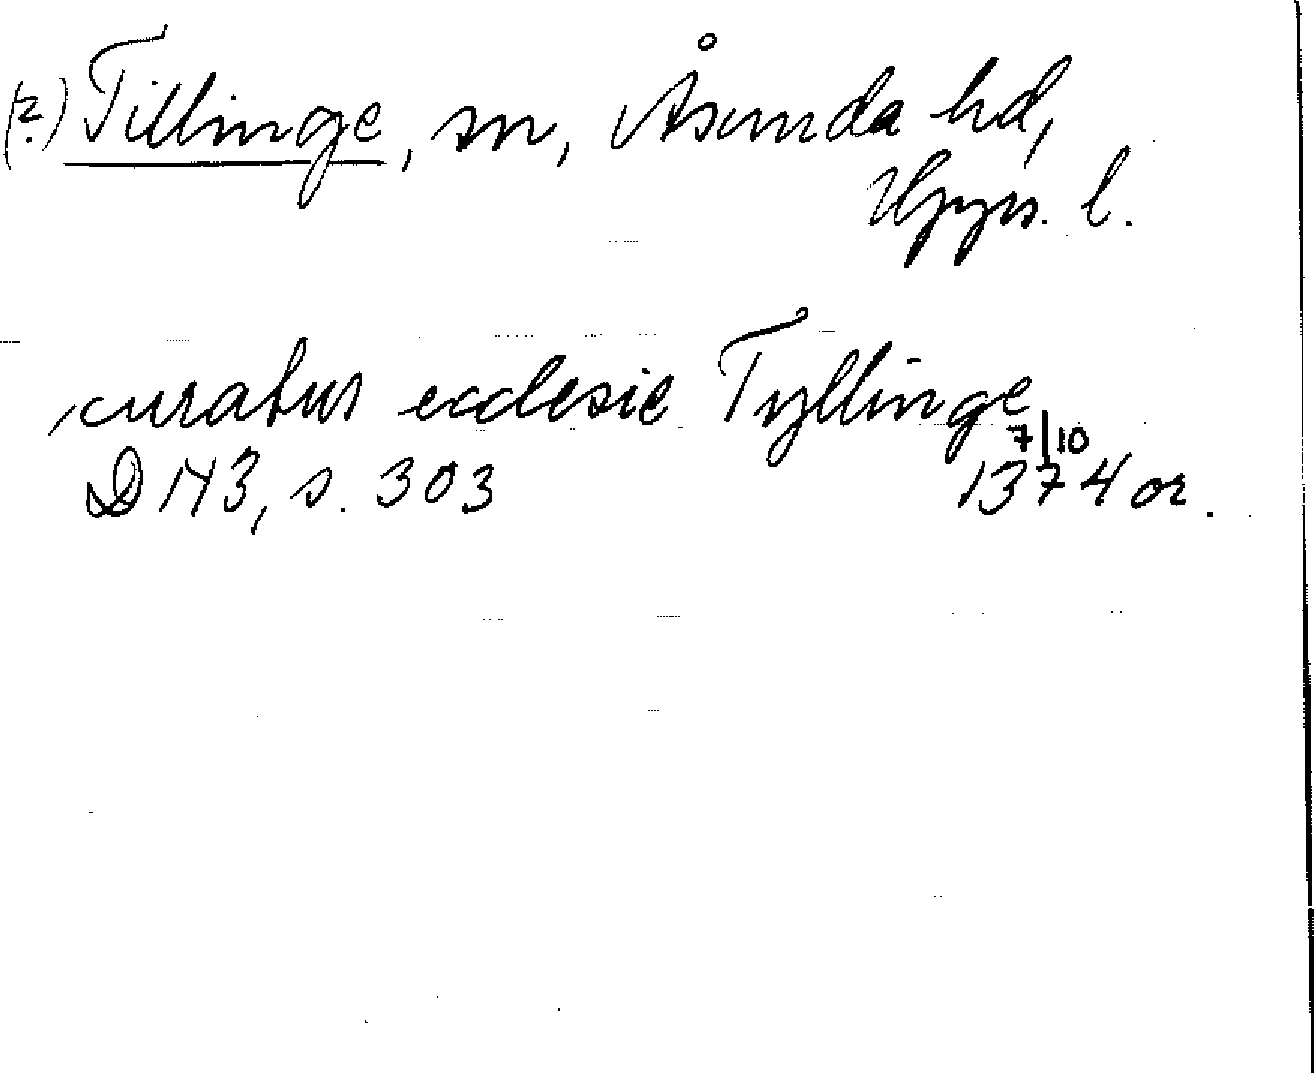 (?) Tillinge, sn, Åsunda hd,
Upps. l.
curatus ecclesie Tyllinge
7/10
D 143, s. 303 1374 or.